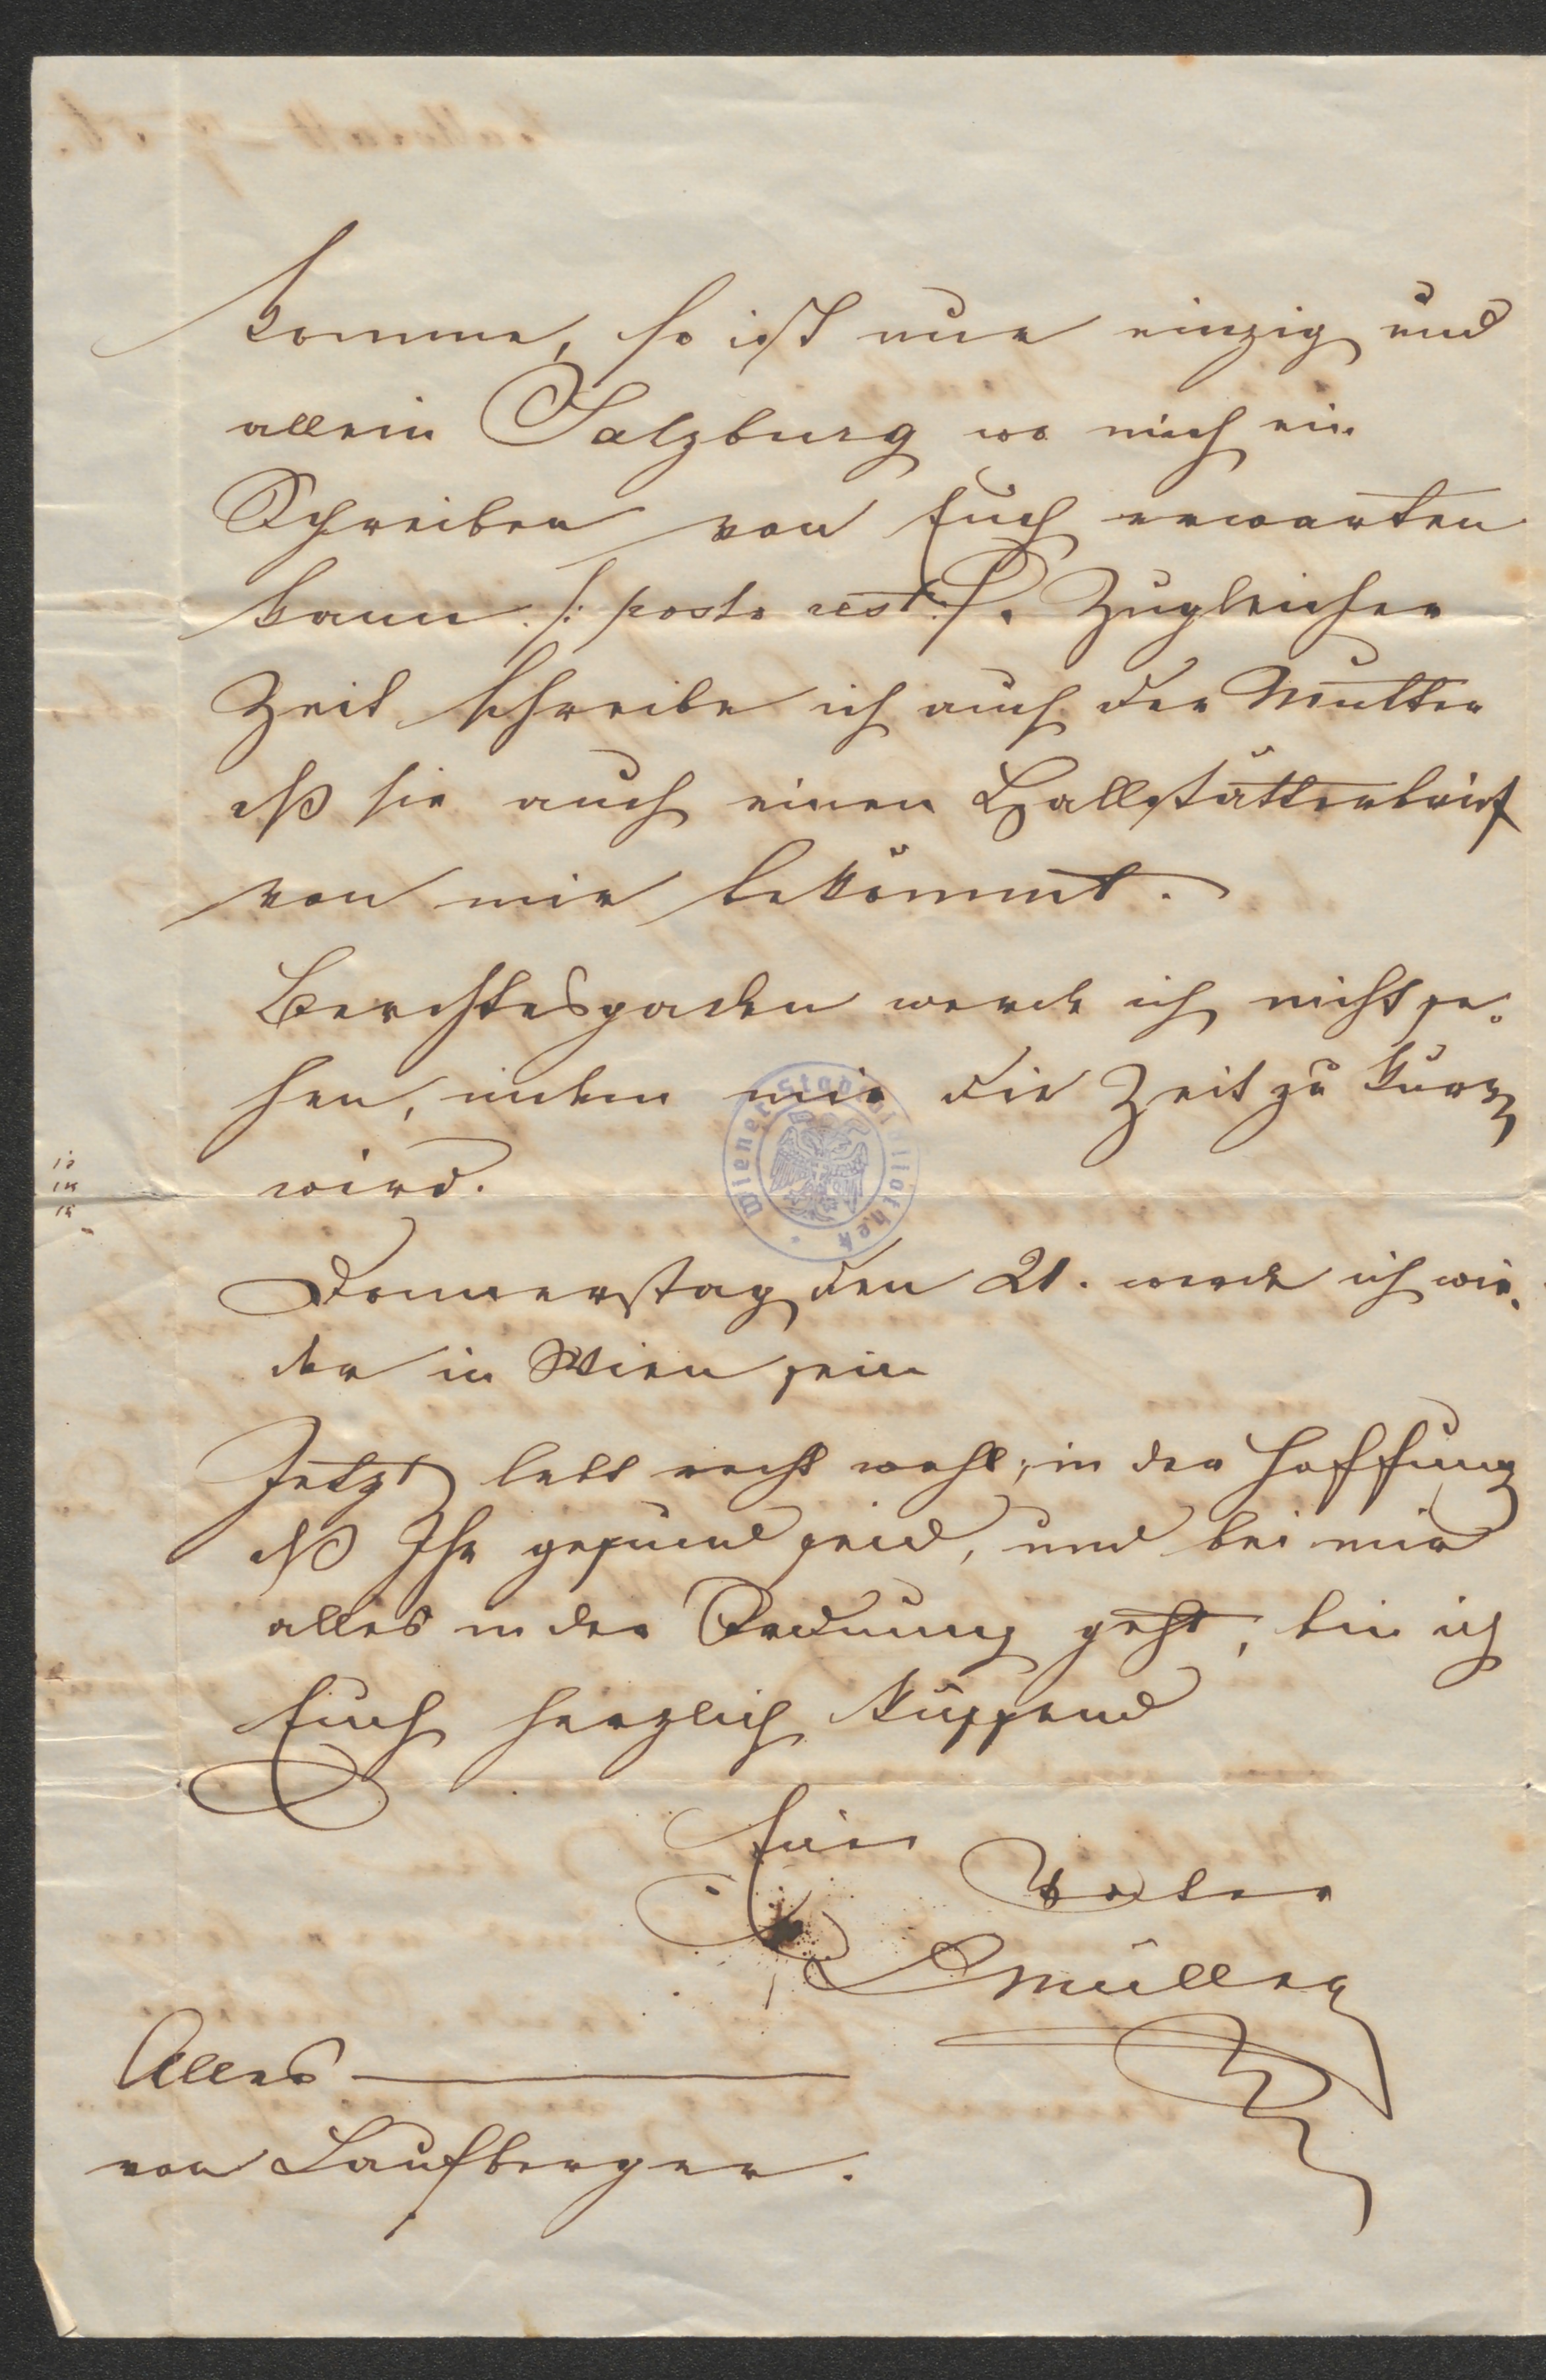 komme, so ist nur einzig und
allein Salzburg wo mich ein
Schreiben von Euch erwarten
kann /: poste rest :/. Zugleicher
Zeit schreibe ich auch der Mutter
dß sie auch einen Hallstätterbrief
von mir bekömmt.
Berchtesgaden werde ich nicht se-
hen, indem mir die Zeit zu kurz
wird.
Wiener Stadtbibliothek
Donnerstag den 21. werde ich wie-
der in Wien sein
Jetzt lebt recht wohl, in der Hoffnung
dß Ihr gesund seid, und bei mir
alles in der Ordnung geht, bin ich
Euch herzlich küssend
Euer
Vater
Müller
Alles
von Laufberger.